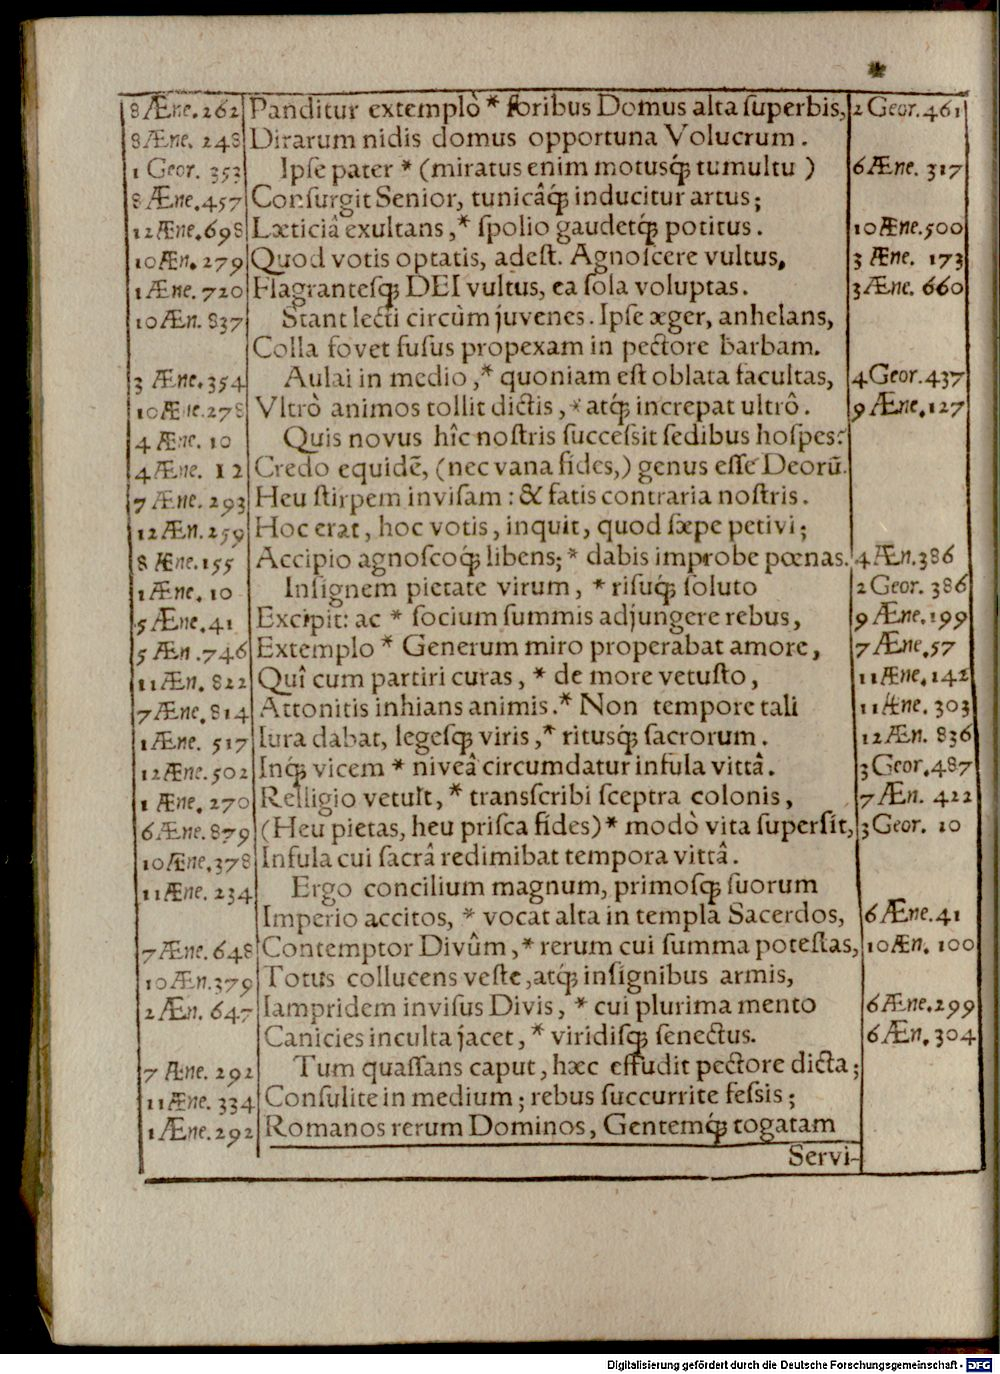 8 Æne. 262 Panditur extemplò * foribus Domus alta superbis, 2 Geor. 461
8 Æne. 248 Dirarum nidis domus opportuna Volucrum.
1 Geor. 353 Ipse pater * (miratus enim motusq́; tumultu) 6 Æne. 317
8 Æne. 457 Consurgit Senior, tunicâq́; inducitur artus;
12 Æne. 698 Lætitiâ exultans, * spolio gaudetq́; potitus. 10 Æne. 500
10 Æn. 279 Quod votis optatis, adest. Agnoscere vultus, 3 Æne. 173
1 Æne. 720 Flagrantesq; DEI vultus, ea sola voluptas. 3 Æne. 660
10 Æn. 837 Stant lecti circùm juvenes. Ipse æger, anhelans,
Colla fovet fusus propexam in pectore barbam.
3 Æne. 354 Aulai in medio, * quoniam est oblata facultas, 4 Geor. 437
10 Æne. 278 Vltrò animos tollit dictis, * atq́; increpat ultrô. 9 Æne. 127
4 Æne. 10 Quis novus hîc nostris successit sedibus hospes?
4 Æne. 12 Credo equidẽ, (nec vana fides,) genus esse Deorũ.
7 Æne. 293 Heu stirpem invisam: & fatis contraria nostris.
12 Æn. 259 Hoc erat, hoc votis, inquit, quod sæpe petivi;
8 Æne. 155 Accipio agnoscoq́; libens; * dabis improbe pœnas. 4 Æn. 386
1 Æne. 10 Insignem pietate virum, * risuq́; soluto 2 Geor. 386
5 Æne. 41 Excipit: ac * socium summis adjungere rebus, 9 Æne. 199
5 Æn. 746 Extemplo * Generum miro properabat amore, 7 Æne. 57
11 Æn. 822 Quî cum partiri curas, * de more vetusto, 11 Æne. 142
7 Æne. 814 Attonitis inhians animis. * Non tempore tali 11 Æne. 303
1 Æne. 517 Iura dabat, legesq́; viris, * ritusq́; sacrorum. 12 Æn. 836
12 Æne. 502 Inq́; vicem * niveâ circumdatur infula vittâ. 3 Geor. 487
1 Æne. 270 Relligio vetuit, * transscribi sceptra colonis, 7 Æn. 422
6 Æne. 879 (Heu pietas, heu prisca fides) * modò vita supersit, 3 Geor. 10
10 Æne. 378 Infula cui sacrâ redimibat tempora vittâ.
11 Æne. 234 Ergo concilium magnum, primosq; suorum
Imperio accitos, * vocat alta in templa Sacerdos, 6 Æne. 41
7 Æne. 648 Contemptor Divûm, * rerum cui summa potestas, 10 Æn. 100
10 Æn. 379 Totus collucens veste, atq́; insignibus armis,
2 Æn. 647 Iampridem invisus Divis, * cui plurima mento 6 Æne. 299
Canicies inculta jacet, * viridisq; senectus. 6 Æn. 304
7 Æne. 292 Tum quassans caput, hæc effudit pectore dicta;
11 Æne. 334 Consulite in medium; rebus succurrite fessis;
1 Æne. 292 Romanos rerum Dominos, Gentemq́; togatam
Servi-
Digitalisierung gefördert durch die Deutsche Forschungsgemeinschaft - DFG